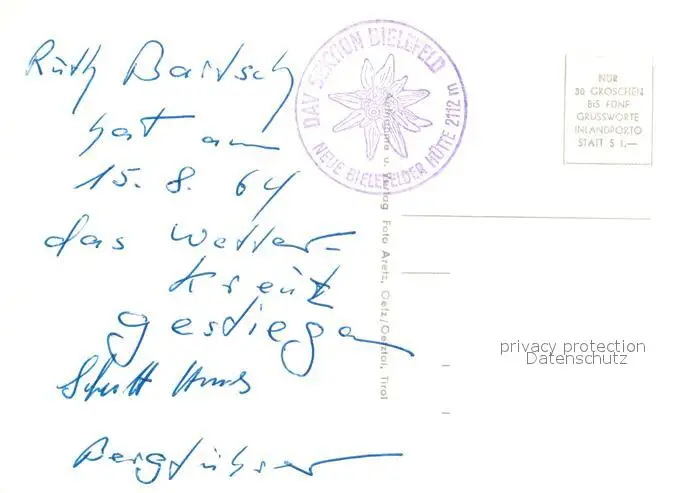 Ruth Bartsch
hat am
15. 8. 64
das Wetter-
kreuz
gestiegen
Hans
Bergführer
DAV SEKTION BIELEFELD
NEUE BIELEFELDER HÜTTE 2112 m
Aufnahme u. Verlag Foto Aretz, Oetz/Oetztal, Tirol
NUR
30 GROSCHEN
BIS FÜNF
GRUSSWORTE
INLANDPORTO
STATT S 1.—
privacy protection
Datenschutz